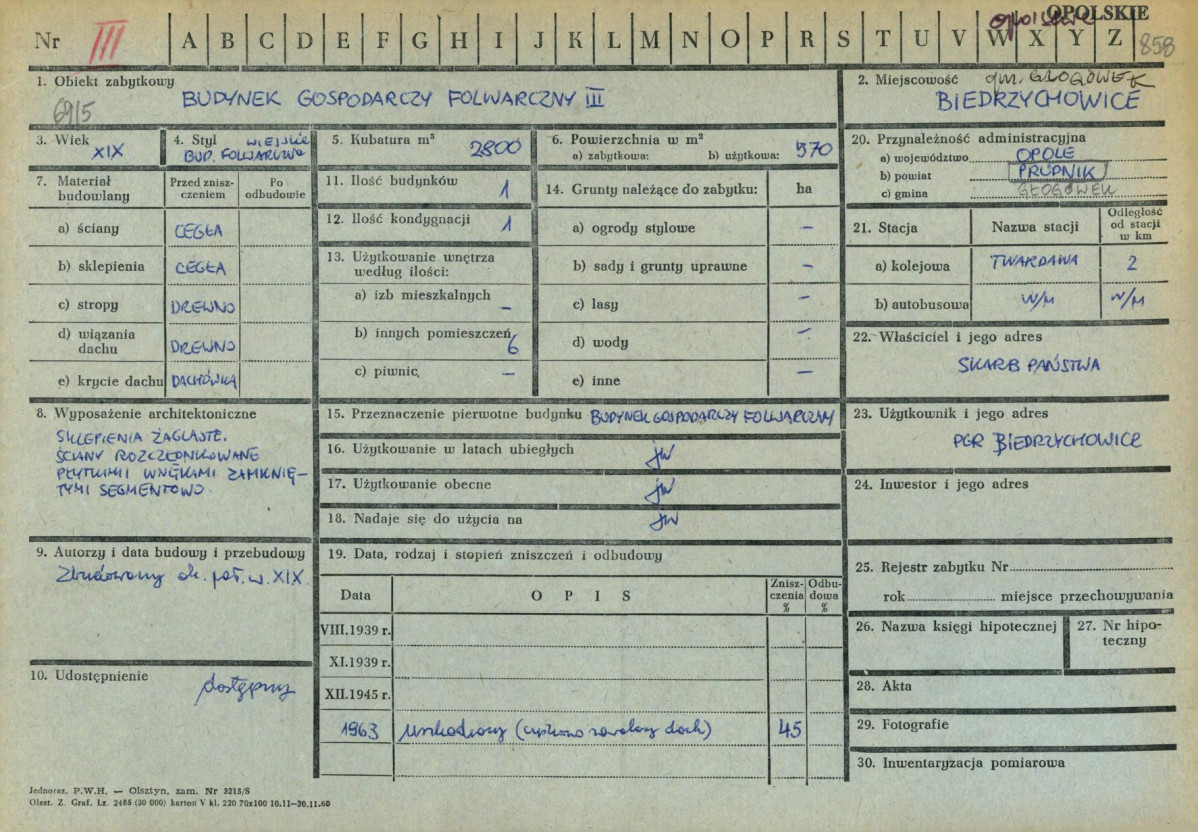 opolskie OPOLSKIE
Nr III A B C D E F G H I J K L M N O P R S T U V W X Y Z 858
1. Obiekt zabytkowy
69/5
BUDYNEK GOSPODARCZY FOLWARCZNY III
2. Miejscowość gm. GŁOGÓWEK
BIEDRZYCHOWICE
3. Wiek
XIX
4. Styl WIEJSKIE
BUD. FOLWARCZNE
5. Kubatura m³ 2800
6. Powierzchnia w m²
a) zabytkowa: b) użytkowa: 570
20. Przynależność administracyjna
a) województwo OPOLE
b) powiat PRUDNIK
c) gmina GŁOGÓWEK
7. Materiał budowlany
Przed zniszczeniem
Po odbudowie
a) ściany CEGŁA
b) sklepienia CEGŁA
c) stropy DREWNO
d) wiązania dachu DREWNO
e) krycie dachu DACHÓWKA
11. Ilość budynków 1
12. Ilość kondygnacji 1
13. Użytkowanie wnętrza
według ilości:
a) izb mieszkalnych –
b) innych pomieszczeń 6
c) piwnic –
14. Grunty należące do zabytku: ha
a) ogrody stylowe –
b) sady i grunty uprawne –
c) lasy –
d) wody –
e) inne –
21. Stacja Nazwa stacji Odległość od stacji w km
a) kolejowa TWARDAWA 2
b) autobusowa W/M W/M
22. Właściciel i jego adres
SKARB PAŃSTWA
8. Wyposażenie architektoniczne
SKLEPIENIA ŻAGLASTE.
ŚCIANY ROZCZŁONKOWANE
PŁYTKIMI WNĘKAMI ZAMKNIĘ-
TYMI SEGMENTOWO.
15. Przeznaczenie pierwotne budynku BUDYNEK GOSPODARCZY FOLWARCZNY
16. Użytkowanie w latach ubiegłych jw
17. Użytkowanie obecne jw
18. Nadaje się do użycia na jw
23. Użytkownik i jego adres
PGR BIEDRZYCHOWICE
24. Inwestor i jego adres
9. Autorzy i data budowy i przebudowy
Zbudowany ok. poł. w. XIX.
19. Data, rodzaj i stopień zniszczeń i odbudowy
Data O P I S Zniszczenia % Odbudowa %
VIII.1939 r.
XI.1939 r.
XII.1945 r.
1963 uszkodzony (częściowo zawalony dach) 45
25. Rejestr zabytku Nr
rok miejsce przechowywania
26. Nazwa księgi hipotecznej
27. Nr hipoteczny
10. Udostępnienie
dostępny
28. Akta
29. Fotografie
30. Inwentaryzacja pomiarowa
Jednoraz. P.W.H. — Olsztyn, zam. Nr 3215/S
Olszt. Z. Graf. Lz. 2485 (30 000) karton V kl. 220 70x100 10.11–30.11.60